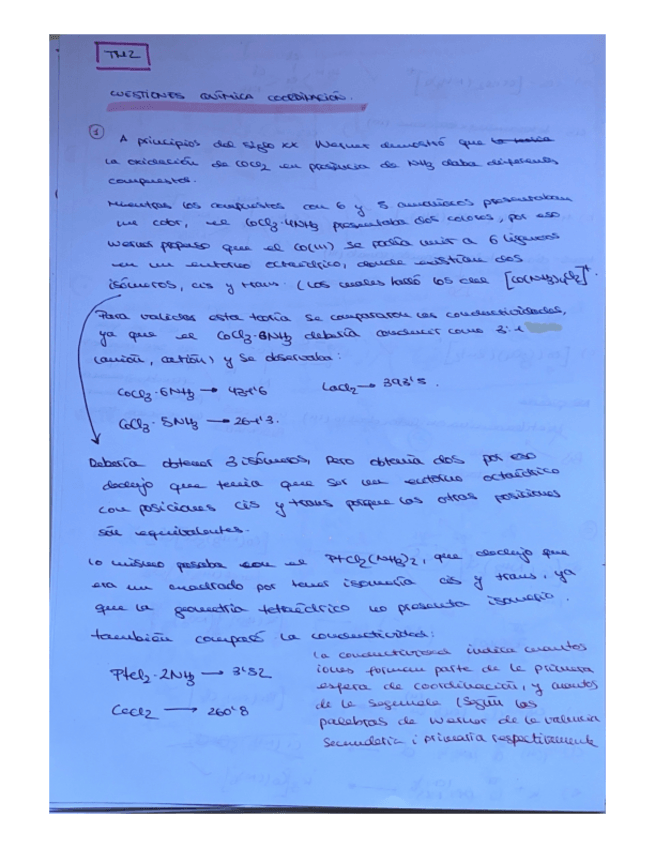 TH2
CUESTIONES QUÍMICA COORDINACIÓN.
1
A principios del siglo XX Werner demostró que la teoría
la oxidación de CoCl2 en presencia de NH3 daba diferentes
compuestos.
Mientras los compuestos con 6 y 5 amoniacos presentaban
un color, el CoCl3·4NH3 presentaba dos colores, por eso
Werner propuso que el Co(III) se podía unir a 6 ligandos
en un entorno octaédrico, donde existían dos
isómeros, cis y trans. (Los cuales son los del [Co(NH3)4Cl2]+.
Para validar esta teoría se compararon las conductividades,
ya que el CoCl3·6NH3 debería conducir como 3:1
(anión, catión) y se observaba:
CoCl3·6NH3 → 431'6
LaCl2 → 393'5.
CoCl3·5NH3 → 261'3.
Debería obtener 3 isómeros, pero obtenía dos por eso
dedujo que tenía que ser un entorno octaédrico
con posiciones cis y trans porque las otras posiciones
són equivalentes.
Lo mismo pasaba con el PtCl2(NH3)2, que dedujo que
era un cuadrado por tener isomería cis y trans, ya
que la geometría tetraédrico no presenta isomería.
también comparó la conductividad:
PtCl2·2NH3 → 3'52
CaCl2 → 260'8
la conductividad indica cuantos
iones forman parte de la primera
esfera de coordinación, y cuantos
de la segunda (según las
palabras de Werner de la valencia
secundaria i primaria respectivamente